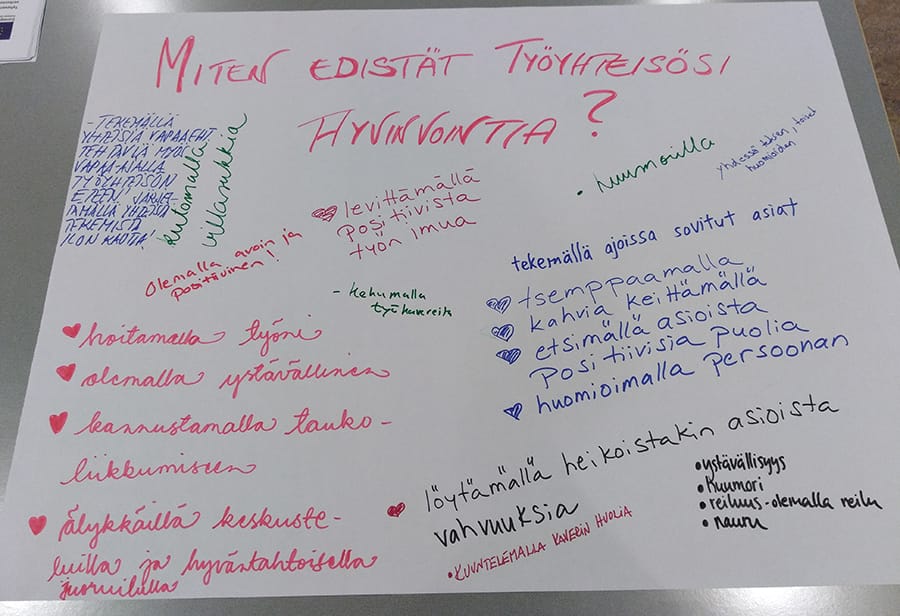 MITEN EDISTÄT TYÖYHTEISÖSI
HYVINVOINTIA?
- TEKEMÄLLÄ
YHTEISIÄ VAPAAEHT
TEHTÄVIÄ MYÖS
VAPAA-AJALLA
TYÖYHTEISÖN
ETEEN JÄRJES-
TÄMÄLLÄ YHTEISTÄ
TEKEMISTÄ
ILON KAUTTA!
kutomalla
villasukkia
Olemalla avoin ja
positiivinen!
levittämällä
positiivista
työn imua
• huumorilla
yhdessä tehden, toiset
huomioiden
- Kehumalla
työkavereita
tekemällä ajoissa sovitut asiat
tsemppaamalla
kahvia keittämällä
etsimällä asioista
positiivisia puolia
huomioimalla persoonan
hoitamalla työni
olemalla ystävällinen
kannustamalla tauko-
liikkumiseen
älykkäillä keskuste-
luilla ja hyväntahtoisella
juoruilulla
löytämällä heikoistakin asioista
vahvuuksia
• KUUNTELEMALLA KAVERIN HUOLIA
• ystävällisyys
• Kuumori
• reiluus - olemalla reilu
• nauru